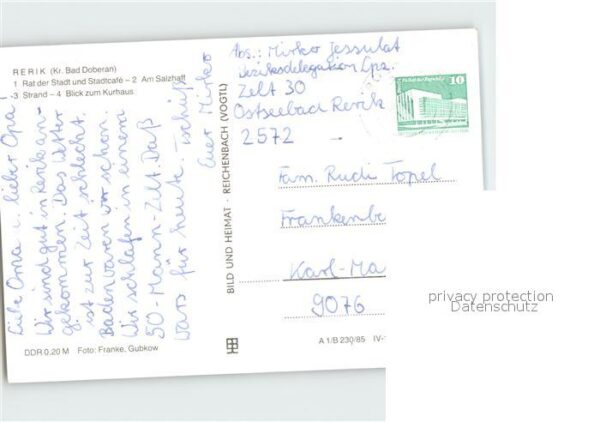 RERIK (Kr. Bad Doberan)
1 Rat der Stadt und Stadtcafé – 2 Am Salzhaff
3 Strand – 4 Blick zum Kurhaus
Liebe Oma u. lieber Opa!
Wir sind gut in Rerik an-
gekommen. Das Wetter
ist zur Zeit schlecht.
Baden waren wir schon.
Wir schlafen in einem
50-Mann-Zelt. Daß
wars für heute. Tschüß
Euer Mirko
DDR 0,20 M Foto: Franke, Gubkow
BILD UND HEIMAT · REICHENBACH (VOGTL)
Abs.: Mirko Jessulat
Bezirksdelegation Lpz.
Zelt 30
Ostseebad Rerik
2572
10
Fam. Rudi Topel
Frankenbe
Karl-Ma
9076
A 1/B 230/85 IV-
privacy protection
Datenschutz